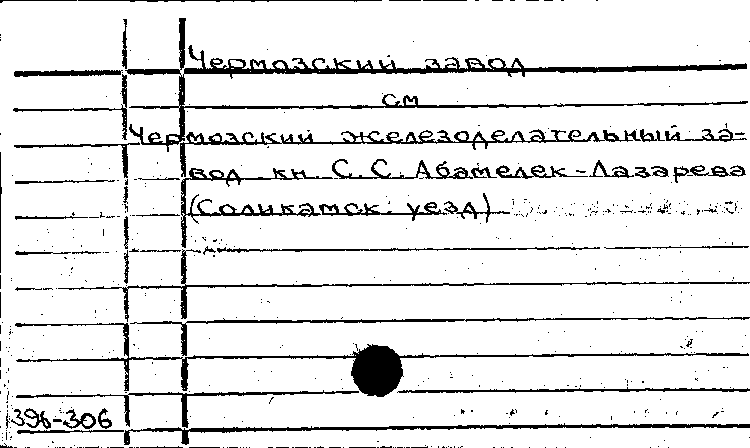 Чермозский завод
см
Чермозский железоделательный за-
вод кн. С. С. Абамелек-Лазарева
(Соликамск. уезд)
396-306